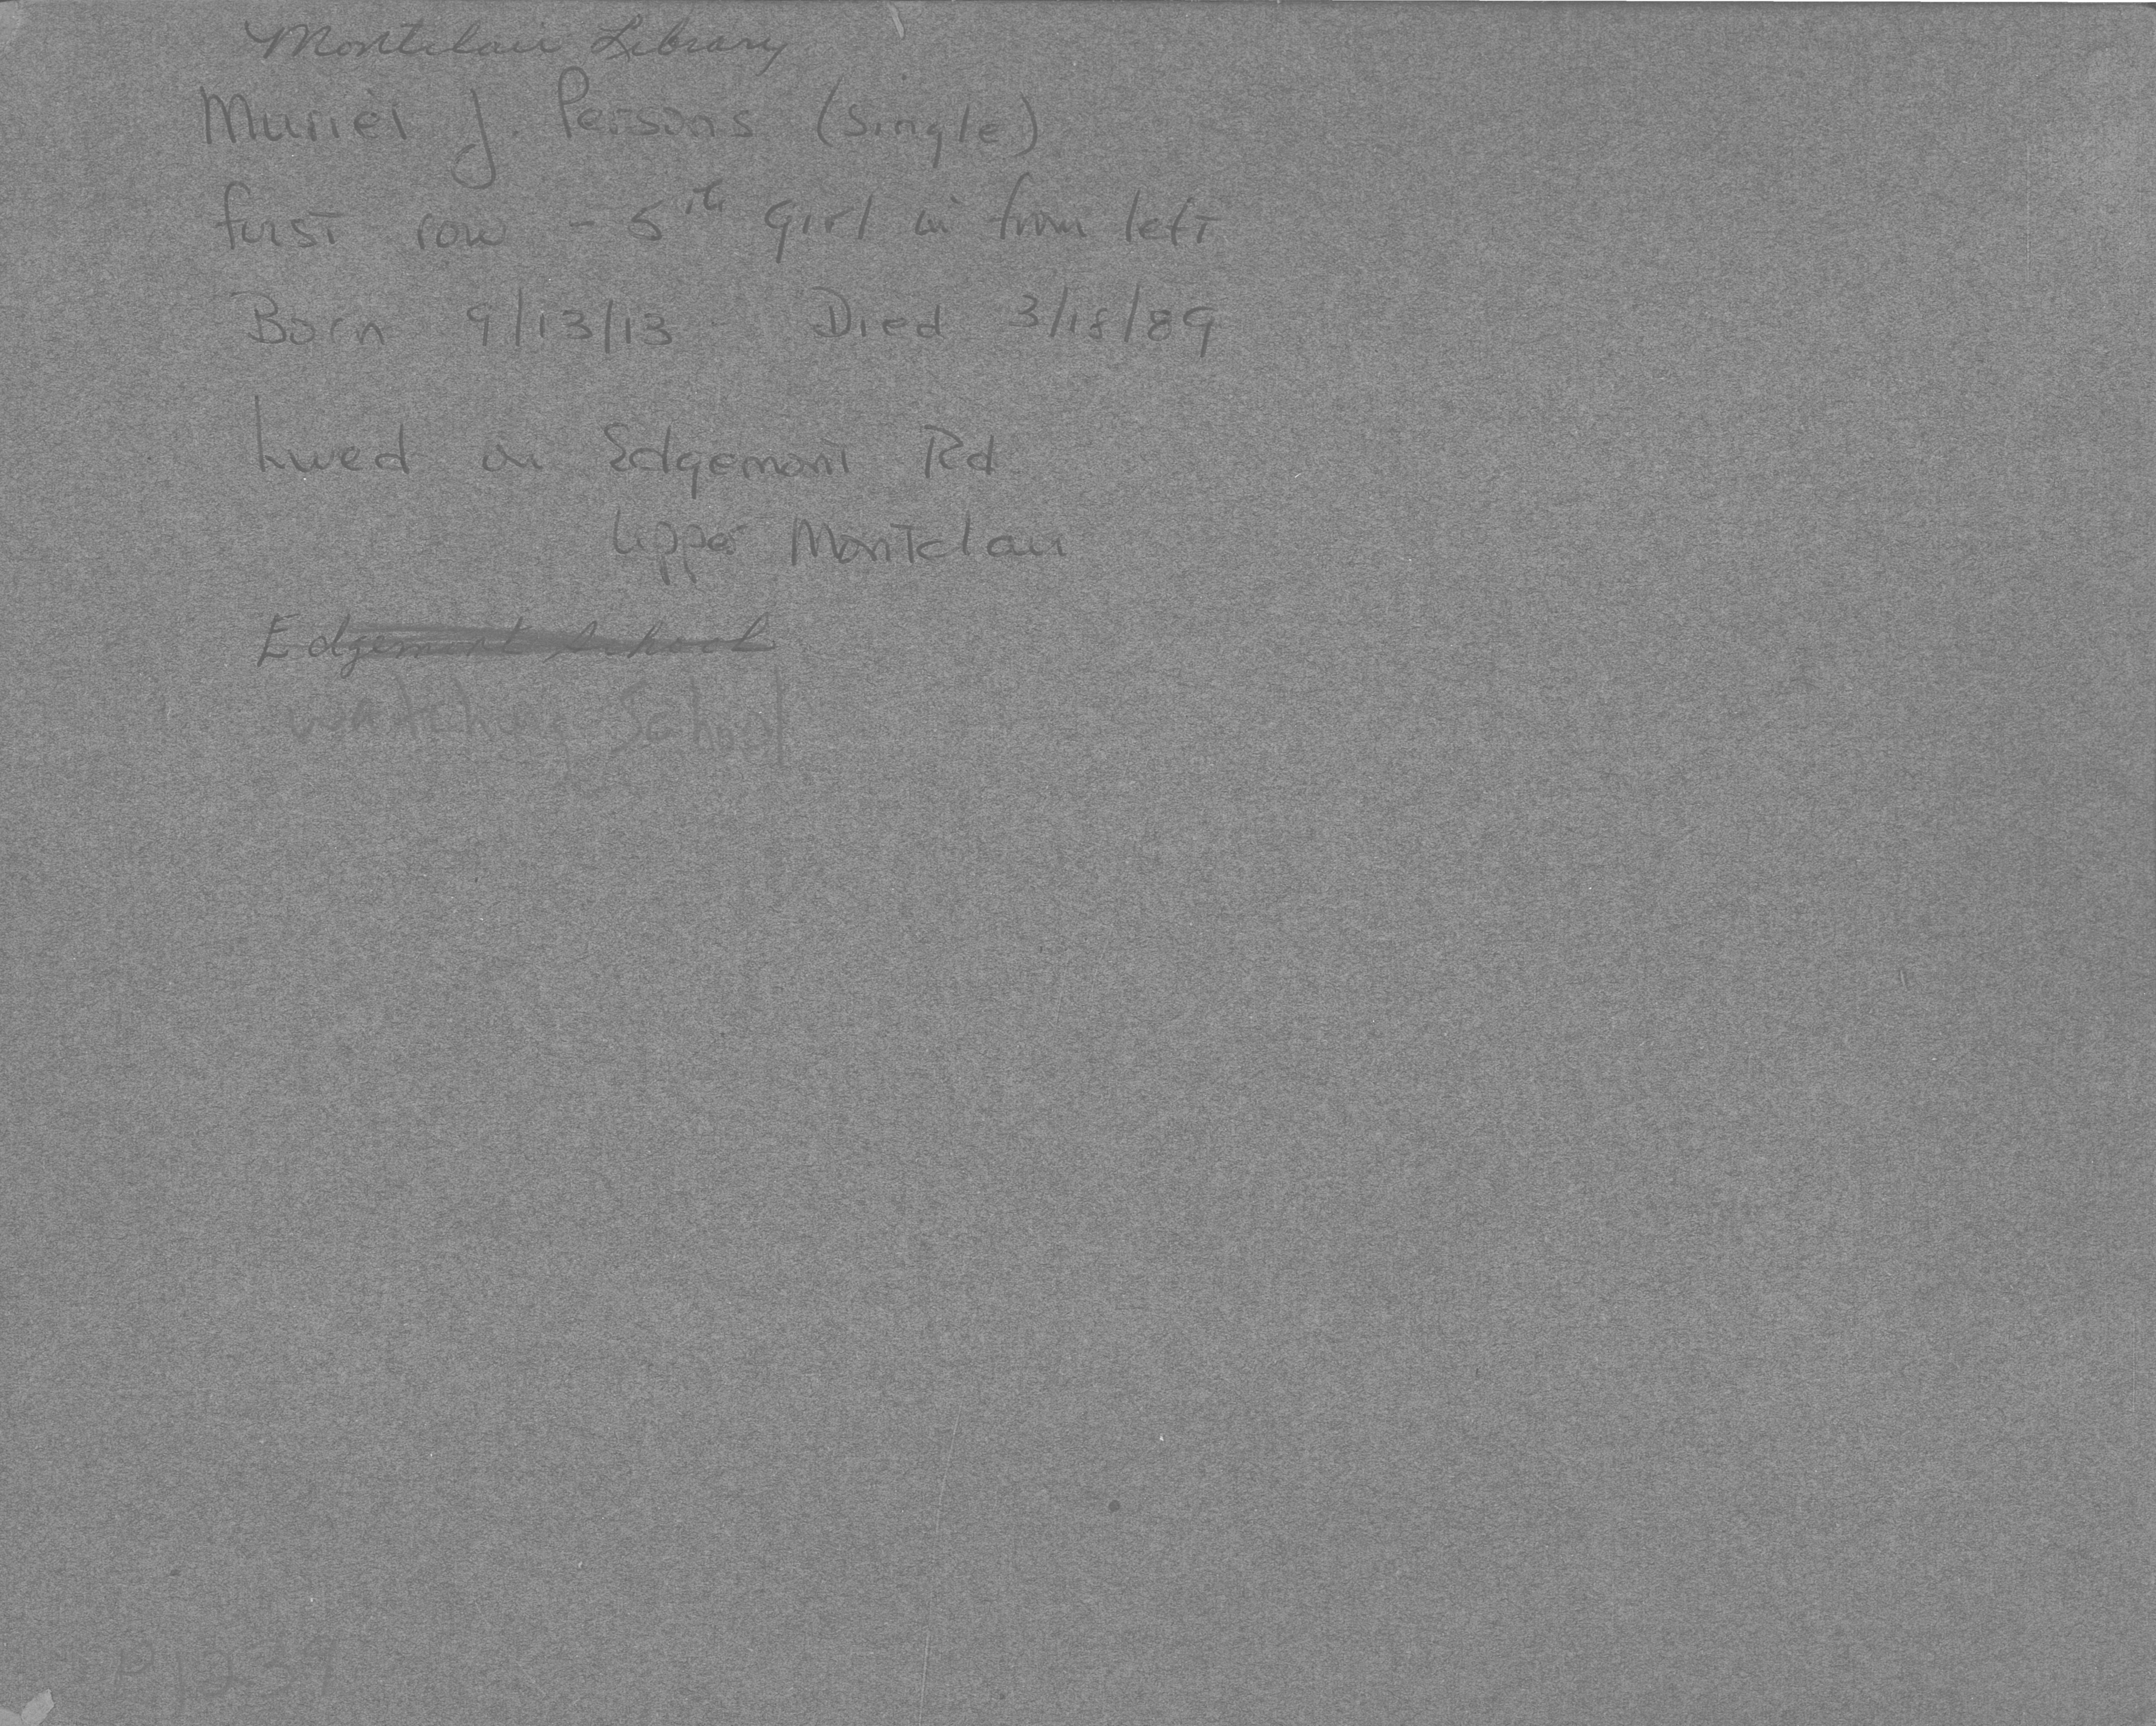 Montclair Library
Muriel J. Persons (Single)
first row - 5th girl in from left
Born 9/13/13 - Died 3/18/89
Lived on Edgemont Rd.
Upper Montclair
Edgemont School
Watchung School